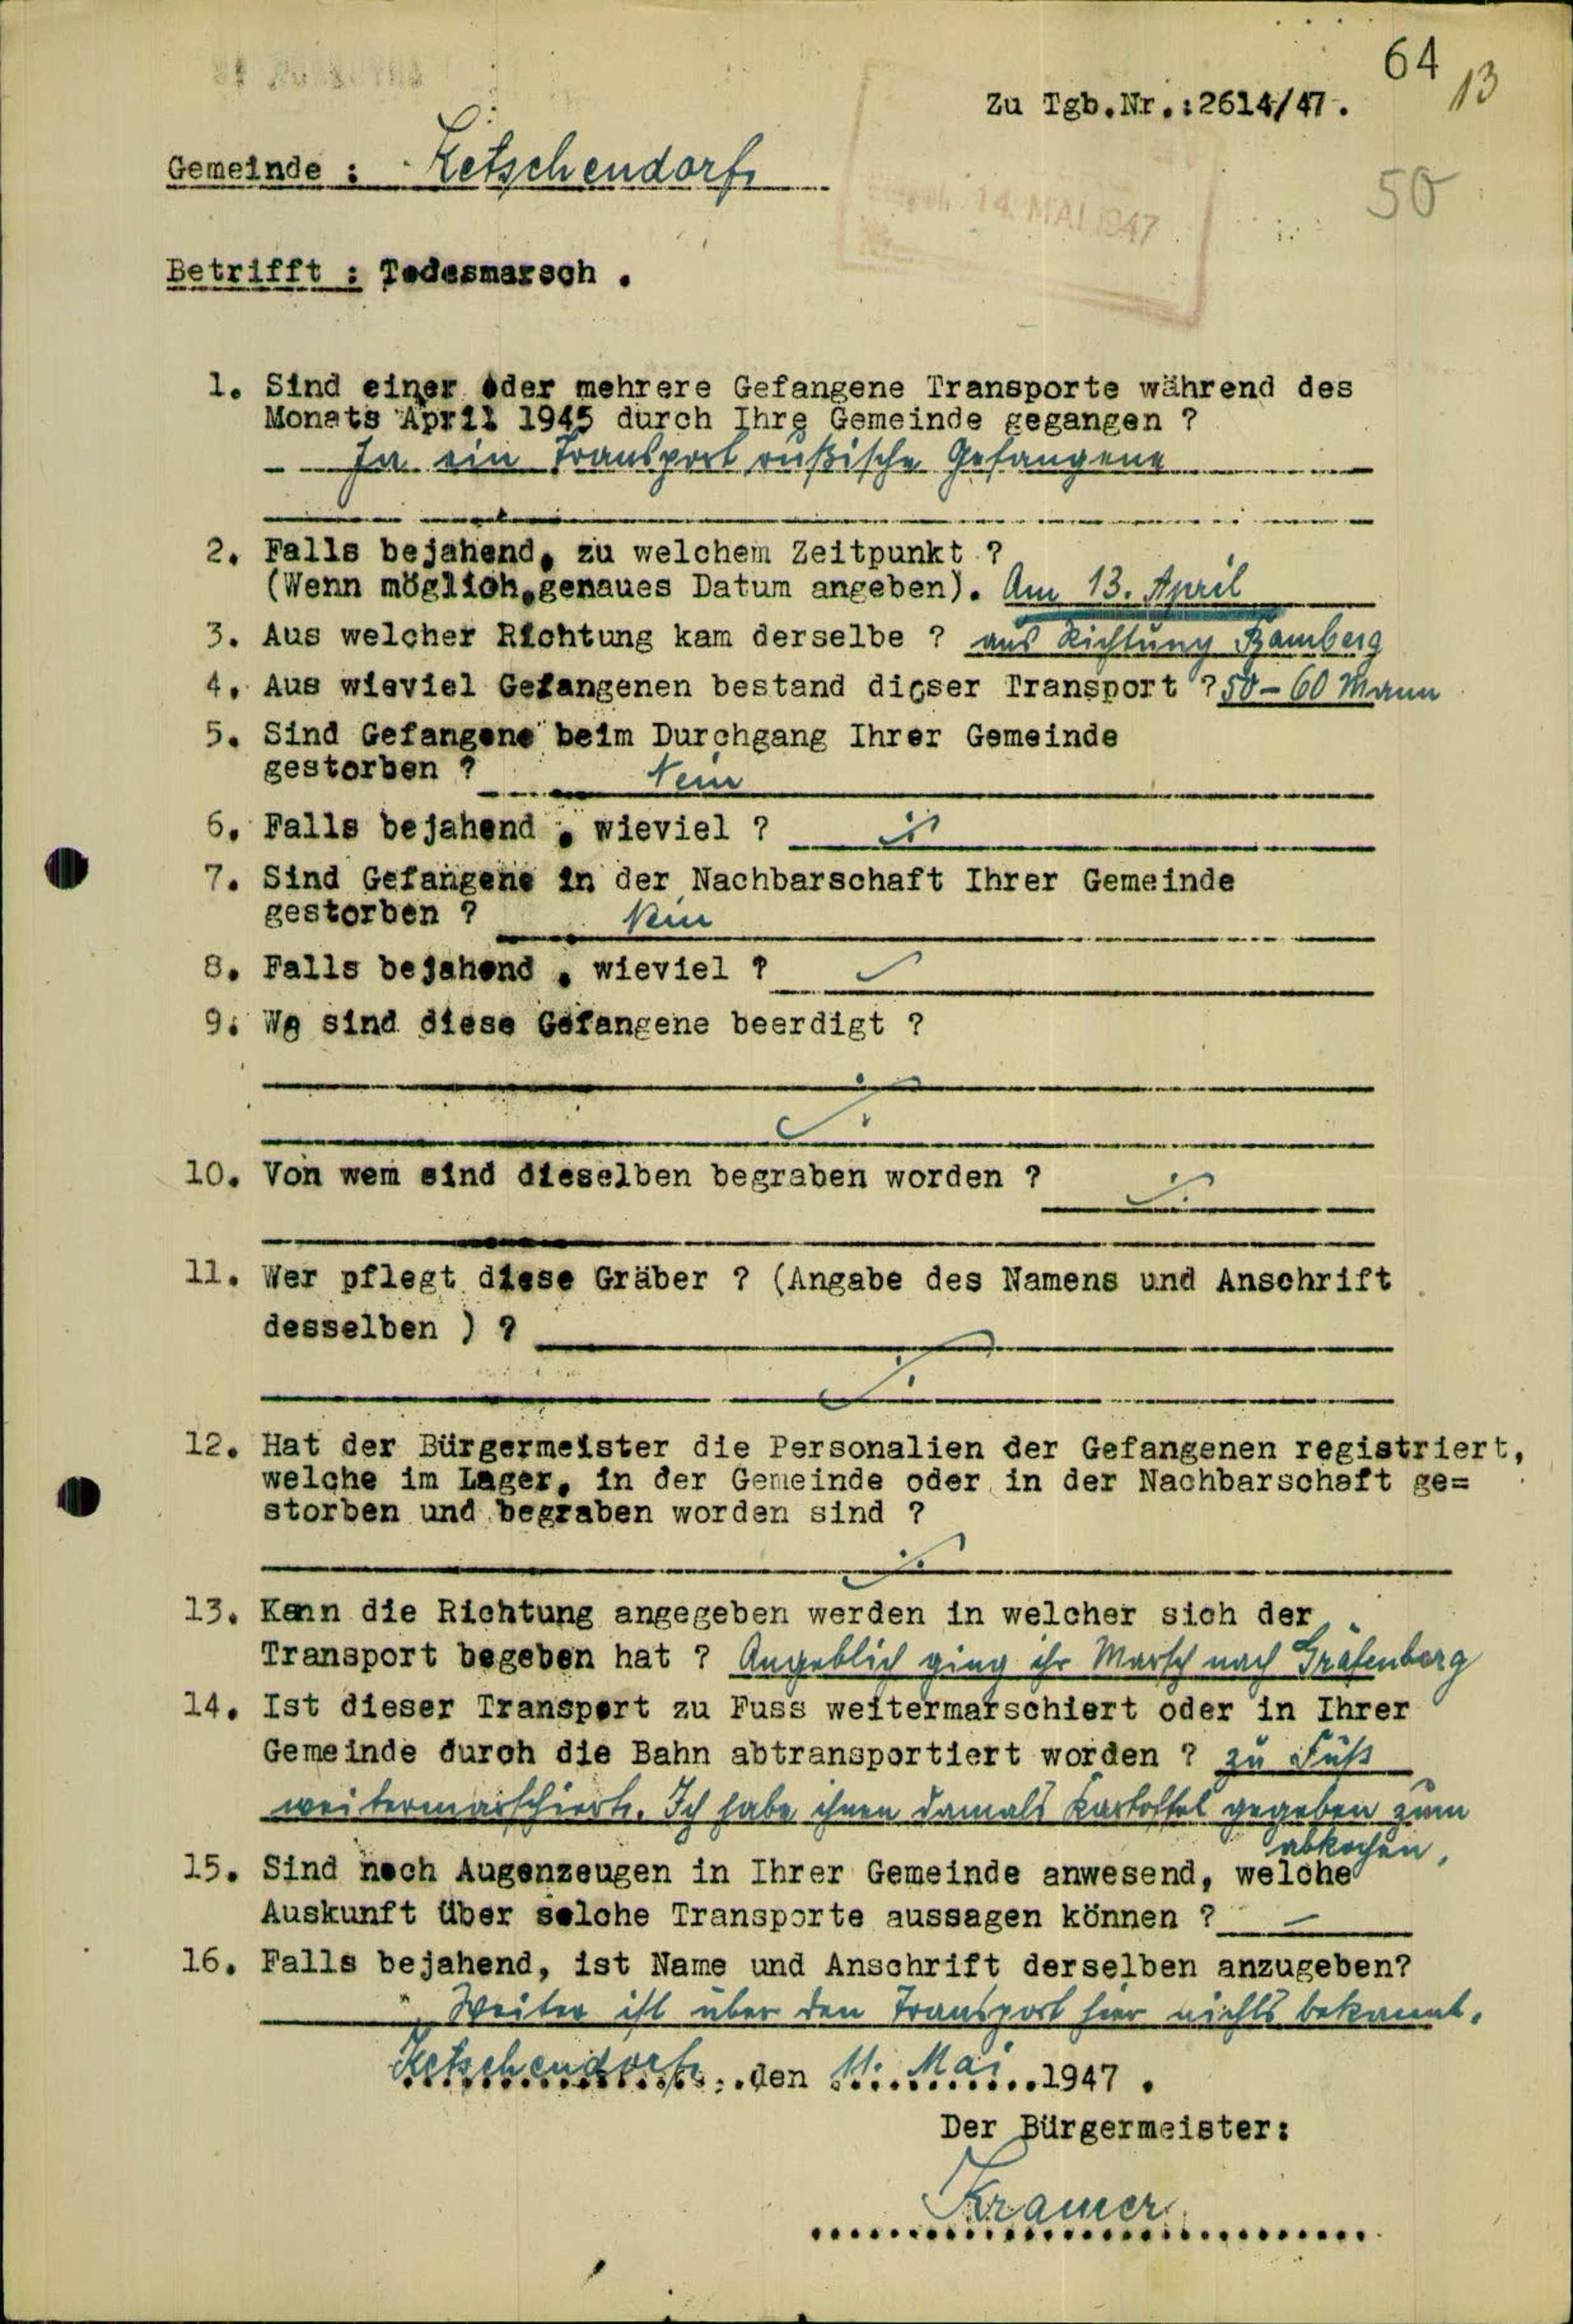 64
13
Zu Tgb.Nr.:2614/47.
Gemeinde : Ketschendorf
50
14. MAI 1947
Betrifft : Todesmarsch .
1. Sind einer oder mehrere Gefangene Transporte während des
Monats April 1945 durch Ihre Gemeinde gegangen ?
Ja ein Transport rußische Gefangene
2. Falls bejahend, zu welchem Zeitpunkt ?
(Wenn möglich,genaues Datum angeben). Am 13. April
3. Aus welcher Richtung kam derselbe ? aus Richtung Bamberg
4. Aus wieviel Gefangenen bestand dieser Transport ? 50 - 60 Mann
5. Sind Gefangene beim Durchgang Ihrer Gemeinde
gestorben ? Nein
6. Falls bejahend , wieviel ?
7. Sind Gefangene in der Nachbarschaft Ihrer Gemeinde
gestorben ? Nein
8. Falls bejahend , wieviel ?
9. Wo sind diese Gefangene beerdigt ?
10. Von wem sind dieselben begraben worden ?
11. Wer pflegt diese Gräber ? (Angabe des Namens und Anschrift
desselben ) ?
12. Hat der Bürgermeister die Personalien der Gefangenen registriert,
welche im Lager, in der Gemeinde oder in der Nachbarschaft ge=
storben und begraben worden sind ?
13. Kann die Richtung angegeben werden in welcher sich der
Transport begeben hat ? Angeblich ging ihr Marsch nach Gräfenberg
14. Ist dieser Transport zu Fuss weitermarschiert oder in Ihrer
Gemeinde durch die Bahn abtransportiert worden ? zu Fuß
weitermarschiert. Ich habe ihnen damals Kartoffel gegeben zum
abkochen.
15. Sind noch Augenzeugen in Ihrer Gemeinde anwesend, welche
Auskunft über solche Transporte aussagen können ? —
16. Falls bejahend, ist Name und Anschrift derselben anzugeben?
Weiter ist über den Transport hier nichts bekannt.
Ketschendorf, den 11. Mai 1947 .
Der Bürgermeister:
Kramer